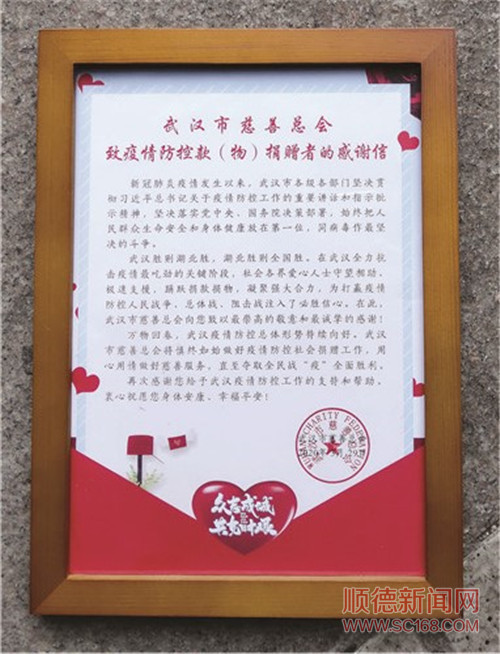 武汉市慈善总会
致疫情防控款（物）捐赠者的感谢信
新冠肺炎疫情发生以来，武汉市各级各部门坚决贯
彻习近平总书记关于疫情防控工作的重要讲话和指示批
示精神，坚决落实党中央、国务院决策部署，始终把人
民群众生命安全和身体健康放在第一位，同病毒作最坚
决的斗争。
武汉胜则湖北胜，湖北胜则全国胜。在武汉全力抗
击疫情最吃劲的关键阶段，社会各界爱心人士守望相助、
极速支援，踊跃捐款捐物，凝聚强大合力，为打赢疫情
防控人民战争、总体战、阻击战注入了必胜信心。在此，
武汉市慈善总会向您致以最崇高的敬意和最诚挚的感谢！
万物回春，武汉疫情防控总体形势持续向好。武汉
市慈善总会将慎终如始做好疫情防控社会捐赠工作，用
心用情做好慈善服务，直至夺取全民战“疫”全面胜利。
再次感谢您给予武汉疫情防控工作的支持和帮助。
衷心祝愿您身体安康，幸福平安！
WUHAN CHARITY FEDERATION
武汉市慈善总会
众志成城
共克时艰
顺德新闻网
www.SC168.com